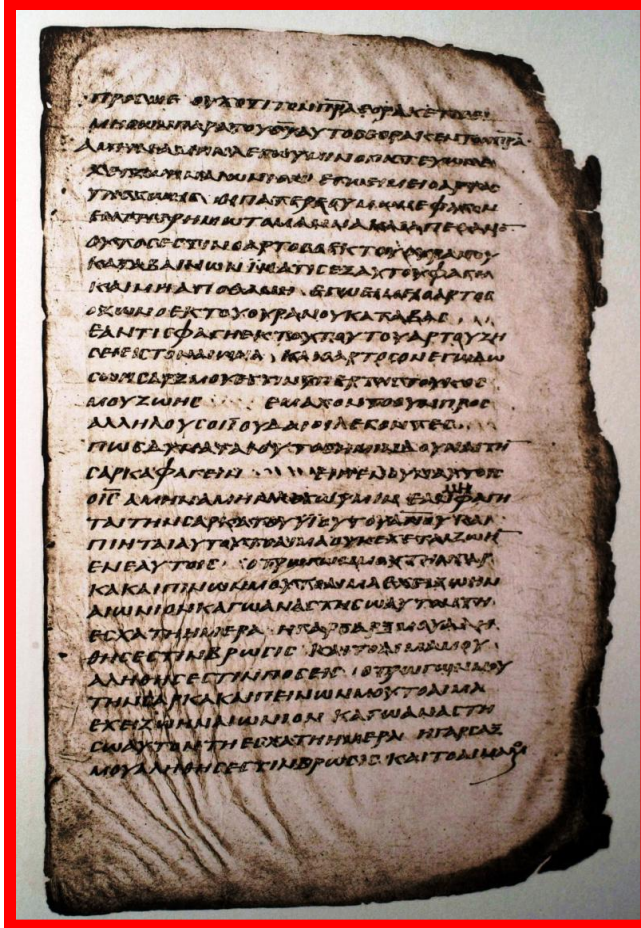 ΠΡΟϹΜΕ ΟΥΧΟΤΙΤΟΝΠ̅Ρ̅Α̅ΕΟΡΑΚΕΝΤΙϹΕΙ
ΜΗΟΩΝΠΑΡΑΤΟΥΠ̅Ρ̅Ϲ̅ΟΥΤΟϹΕΟΡΑΚΕΝΤΟΝΠ̅Ρ̅Α̅
ΑΜΗΝΑΜΗΝΛΕΓΩΥΜΙΝΟΠΙϹΤΕΥΩΝ
ΕΧΕΙΖΩΗΝΑΙΩΝΙΟΝ ΕΓΩΕΙΜΕΙΟΑΡΤΟϹ
ΤΗϹΖΩΗϹ ΟΙΠΑΤΕΡΕϹΥΜΩΝΕΦΑΓΟΝ
ΕΝΤΗΕΡΗΜΩΤΟΜΑΝΝΑΚΑΙΑΠΕΘΑΝΟ̅
ΟΥΤΟϹΕϹΤΙΝΟΑΡΤΟϹΟΕΚΤΟΥΟΥΡΑΝΟΥ
ΚΑΤΑΒΑΙΝΩΝΙΝΑΤΙϹΕΞΑΥΤΟΥΦΑΓΗ
ΚΑΙΜΗΑΠΟΘΑΝΗ ΕΓΩΕΙΜΙΟΑΡΤΟϹ
ΟΖΩΝΟΕΚΤΟΥΟΥΡΑΝΟΥΚΑΤΑΒΑϹ
ΕΑΝΤΙϹΦΑΓΗΕΚΤΟΥΤΟΥΤΟΥΑΡΤΟΥΖΗ
ϹΕΙΕΙϹΤΟΝΑΙΩΝΑ ΚΑΙΟΑΡΤΟϹΟΝΕΓΩΔΩ
ϹΩΗϹΑΡΞΜΟΥΕϹΤΙΝΥΠΕΡΤΗϹΤΟΥΚΟϹ
ΜΟΥΖΩΗϹ ΕΜΑΧΟΝΤΟΟΥΝΠΡΟϹ
ΑΛΛΗΛΟΥϹΟΙΙΟΥΔΑΙΟΙΛΕΓΟΝΤΕϹ
ΠΩϹΔΥΝΑΤΑΙΟΥΤΟϹΗΜΙΝΔΟΥΝΑΙΤΗ̅
ϹΑΡΚΑΦΑΓΕΙΝ ΕΙΠΕΝΟΥΝΑΥΤΟΙϹ
ΟΙ̅Ϲ̅ ΑΜΗΝΑΜΗΝΛΕΓΩΥΜΙΝ ΕΑΝΜΗΦΑΓΗ
ΤΑΙΤΗΝϹΑΡΚΑΤΟΥΥΙΕΥΤΟΥΑ̅Ν̅Ο̅Υ̅ΚΑΙ
ΠΙΗΤΑΙΑΥΤΟΥΤΟΑΙΜΑΟΥΚΕΧΕΤΑΙΖΩΗ̅
ΕΝΕΑΥΤΟΙϹ ΟΤΡΩΓΩΝΜΟΥΤΗΝϹΑΡ
ΚΑΚΑΙΠΙΝΩΝΜΟΥΤΟΑΙΜΑΕΧΕΙΖΩΗΝ
ΑΙΩΝΙΟΝΚΑΓΩΑΝΑϹΤΗϹΩΑΥΤΟΝΤΗ
ΕϹΧΑΤΗΗΜΕΡΑ ΗΓΑΡϹΑΡΞΜΟΥΑΛΗ
ΘΗϹΕϹΤΙΝΒΡΩϹΙϹ ΚΑΙΤΟΑΙΜΑΜΟΥ
ΑΛΗΘΗϹΕϹΤΙΝΠΟϹΕΙϹ ΟΤΡΩΓΩΝΜΟΥ
ΤΗΝϹΑΡΚΑΚΑΙΠΕΙΝΩΝΜΟΥΤΟΑΙΜΑ
ΕΧΕΙΖΩΗΝΑΙΩΝΙΟΝ ΚΑΓΩΑΝΑϹΤΗ
ϹΩΑΥΤΟΝΤΗΕϹΧΑΤΗΗΜΕΡΑ ΗΓΑΡϹΑΞ
ΜΟΥΑΛΗΘΗϹΕϹΤΙΝΒΡΩϹΙϹ ΚΑΙΤΟΑΙΜΑ